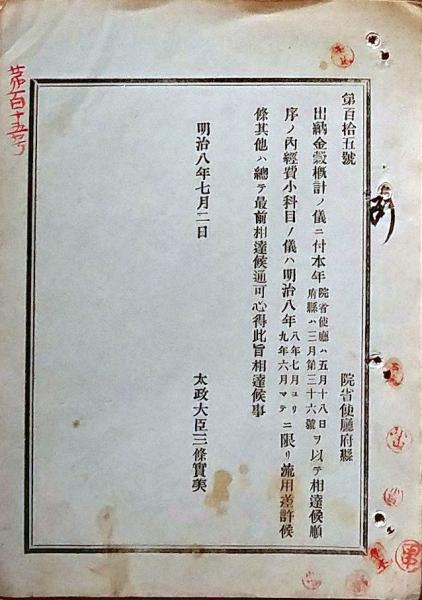 第百十五号
第百拾五號
院省使廳府縣
出納金穀概計ノ儀ニ付本年院省使廳ハ五月十八日府縣ハ三月第三十六號ヲ以テ相達候順
序ノ內經費小科目ノ儀ハ明治八年八年七月ヨリ九年六月マテニ限リ流用差許候
條其他ハ總テ最前相達候通可心得此旨相達候事
明治八年七月二日
太政大臣三條實美